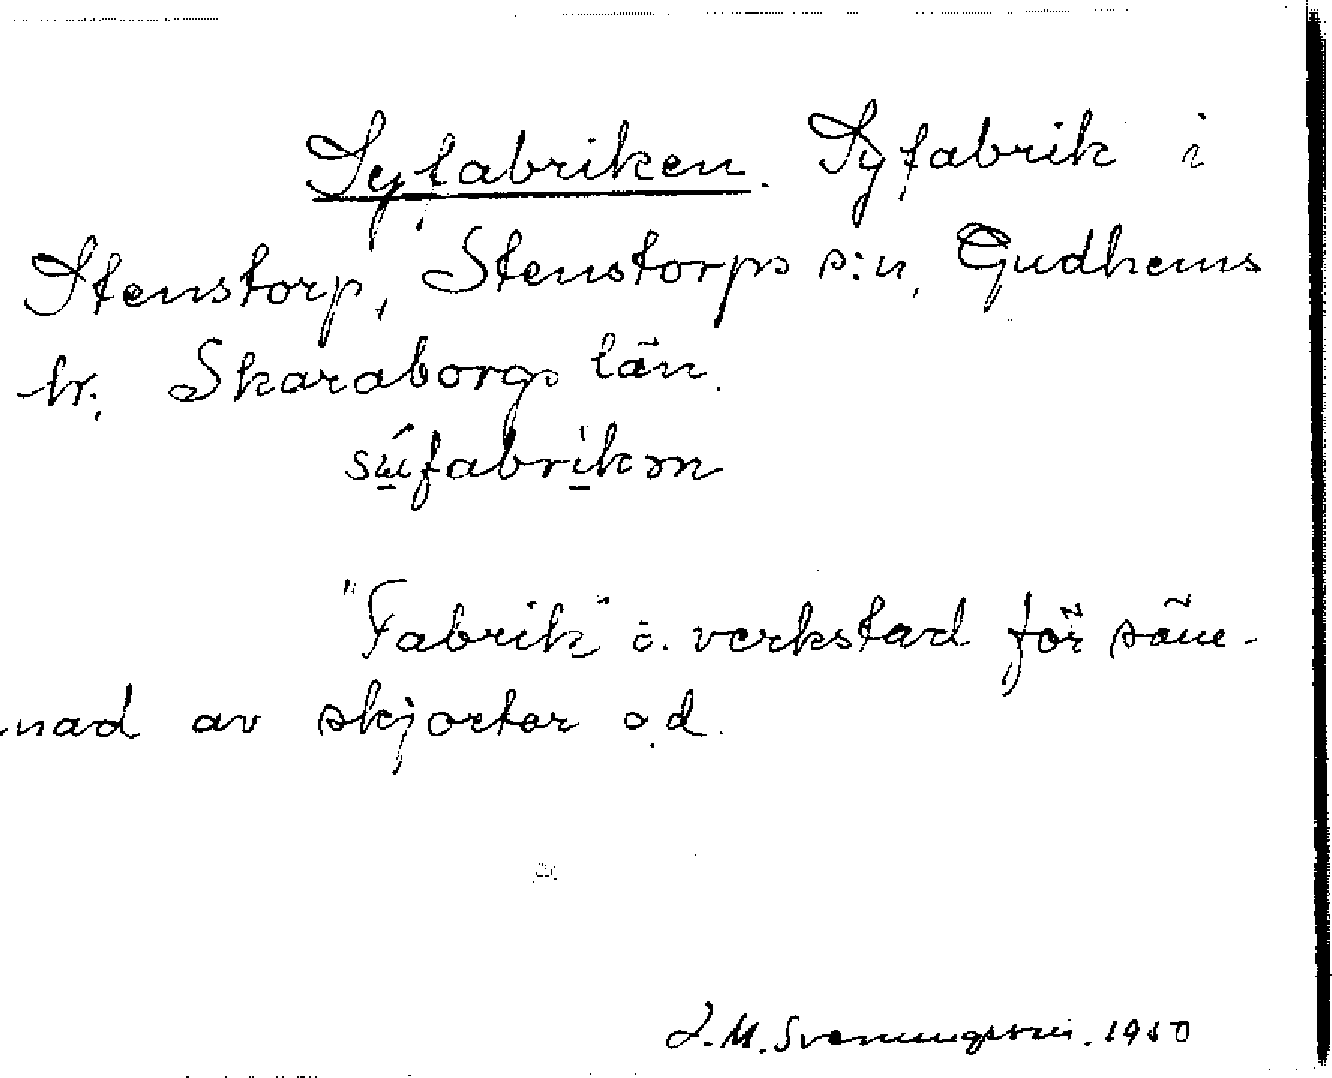 Syfabriken. Syfabrik i
Stenstorp, Stenstorps s:n, Gudhems
hr. Skaraborgs län.
"Fabrik" o. verkstad för söm-
nad av skjortor o.d.
J. M. Svenungsson. 1950